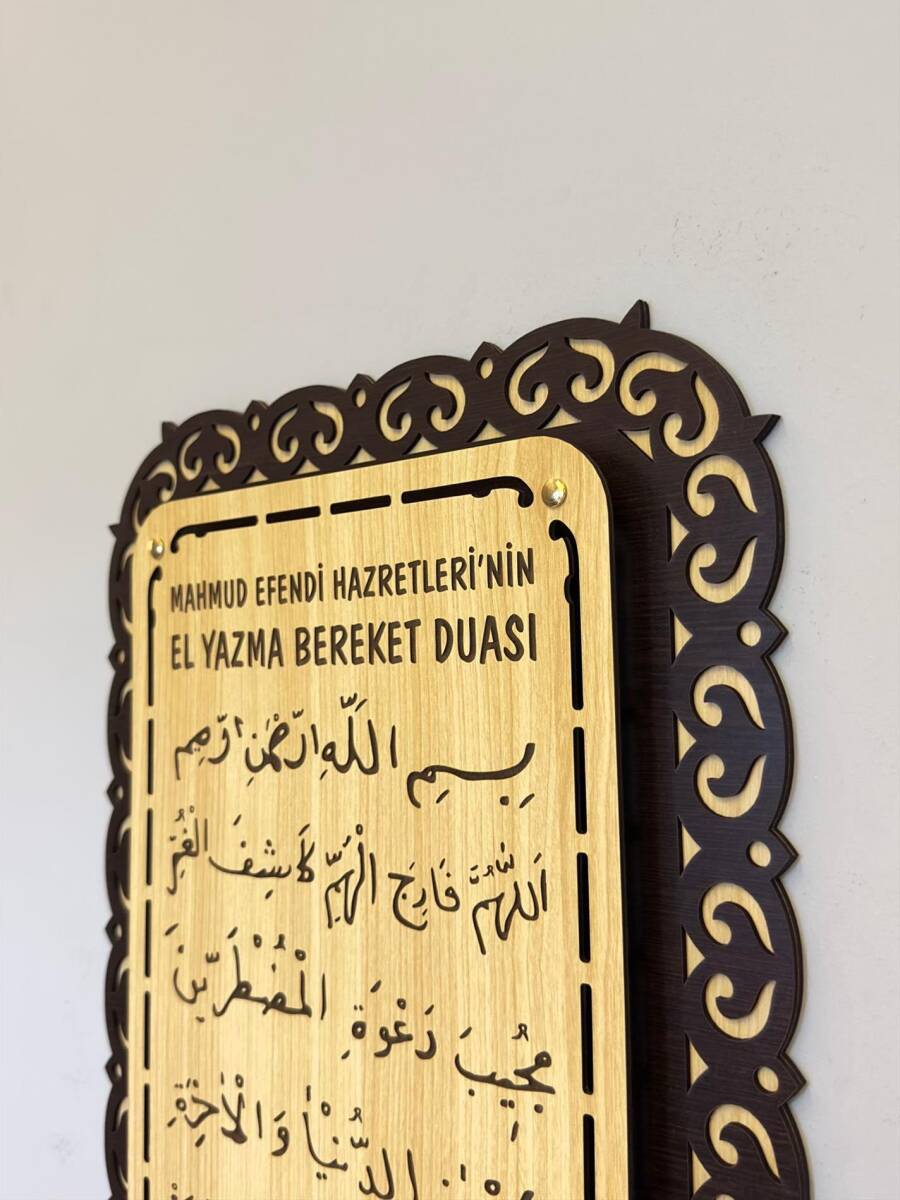 MAHMUD EFENDİ HAZRETLERİ'NİN
EL YAZMA BEREKET DUASI
بِسمِ اللّهِ الرّحْمٰنِ الرّحيمِ
اَللّٰهُمَّ فَارِجَ الْهَمِّ كَاشِفَ الْغَمِّ
مُجِيبَ دَعْوَةِ الْمُضْطَرِّينَ
الدُّنْيَا وَالْاٰخِرَةِ